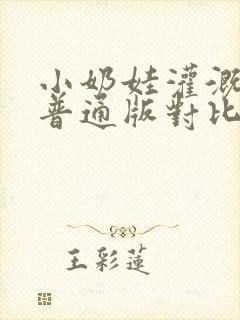 小奶娃灌溉
普通版對比
王彩蓮